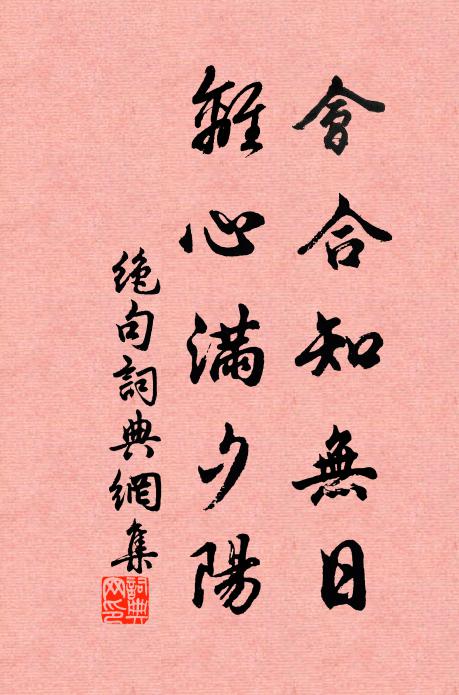 會合知無日
離心滿夕陽
絕句詞典網集
詞典
网印